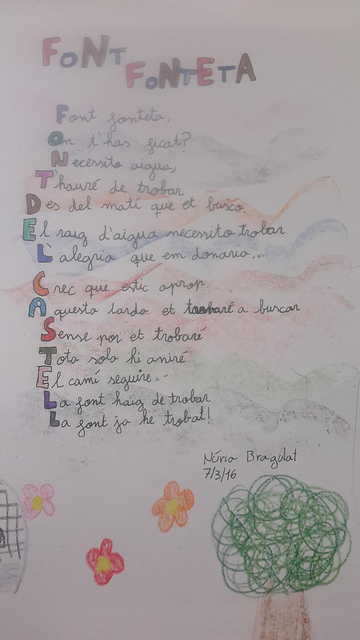 FONT
FONTETA
Font fonteta,
On t'has ficat?
Necessito aigua,
T'hauré de trobar
Des del matí que et busco.
El raig d'aigua necessito trobar
L'alegria que em donaria...
Crec que estic aprop
Aquesta tarda et tornaré a buscar
Sense por et trobaré
Tota sola hi aniré
El camí seguire...
La font haig de trobar
La font ja he trobat!
Núria Bragulat
7/3/16